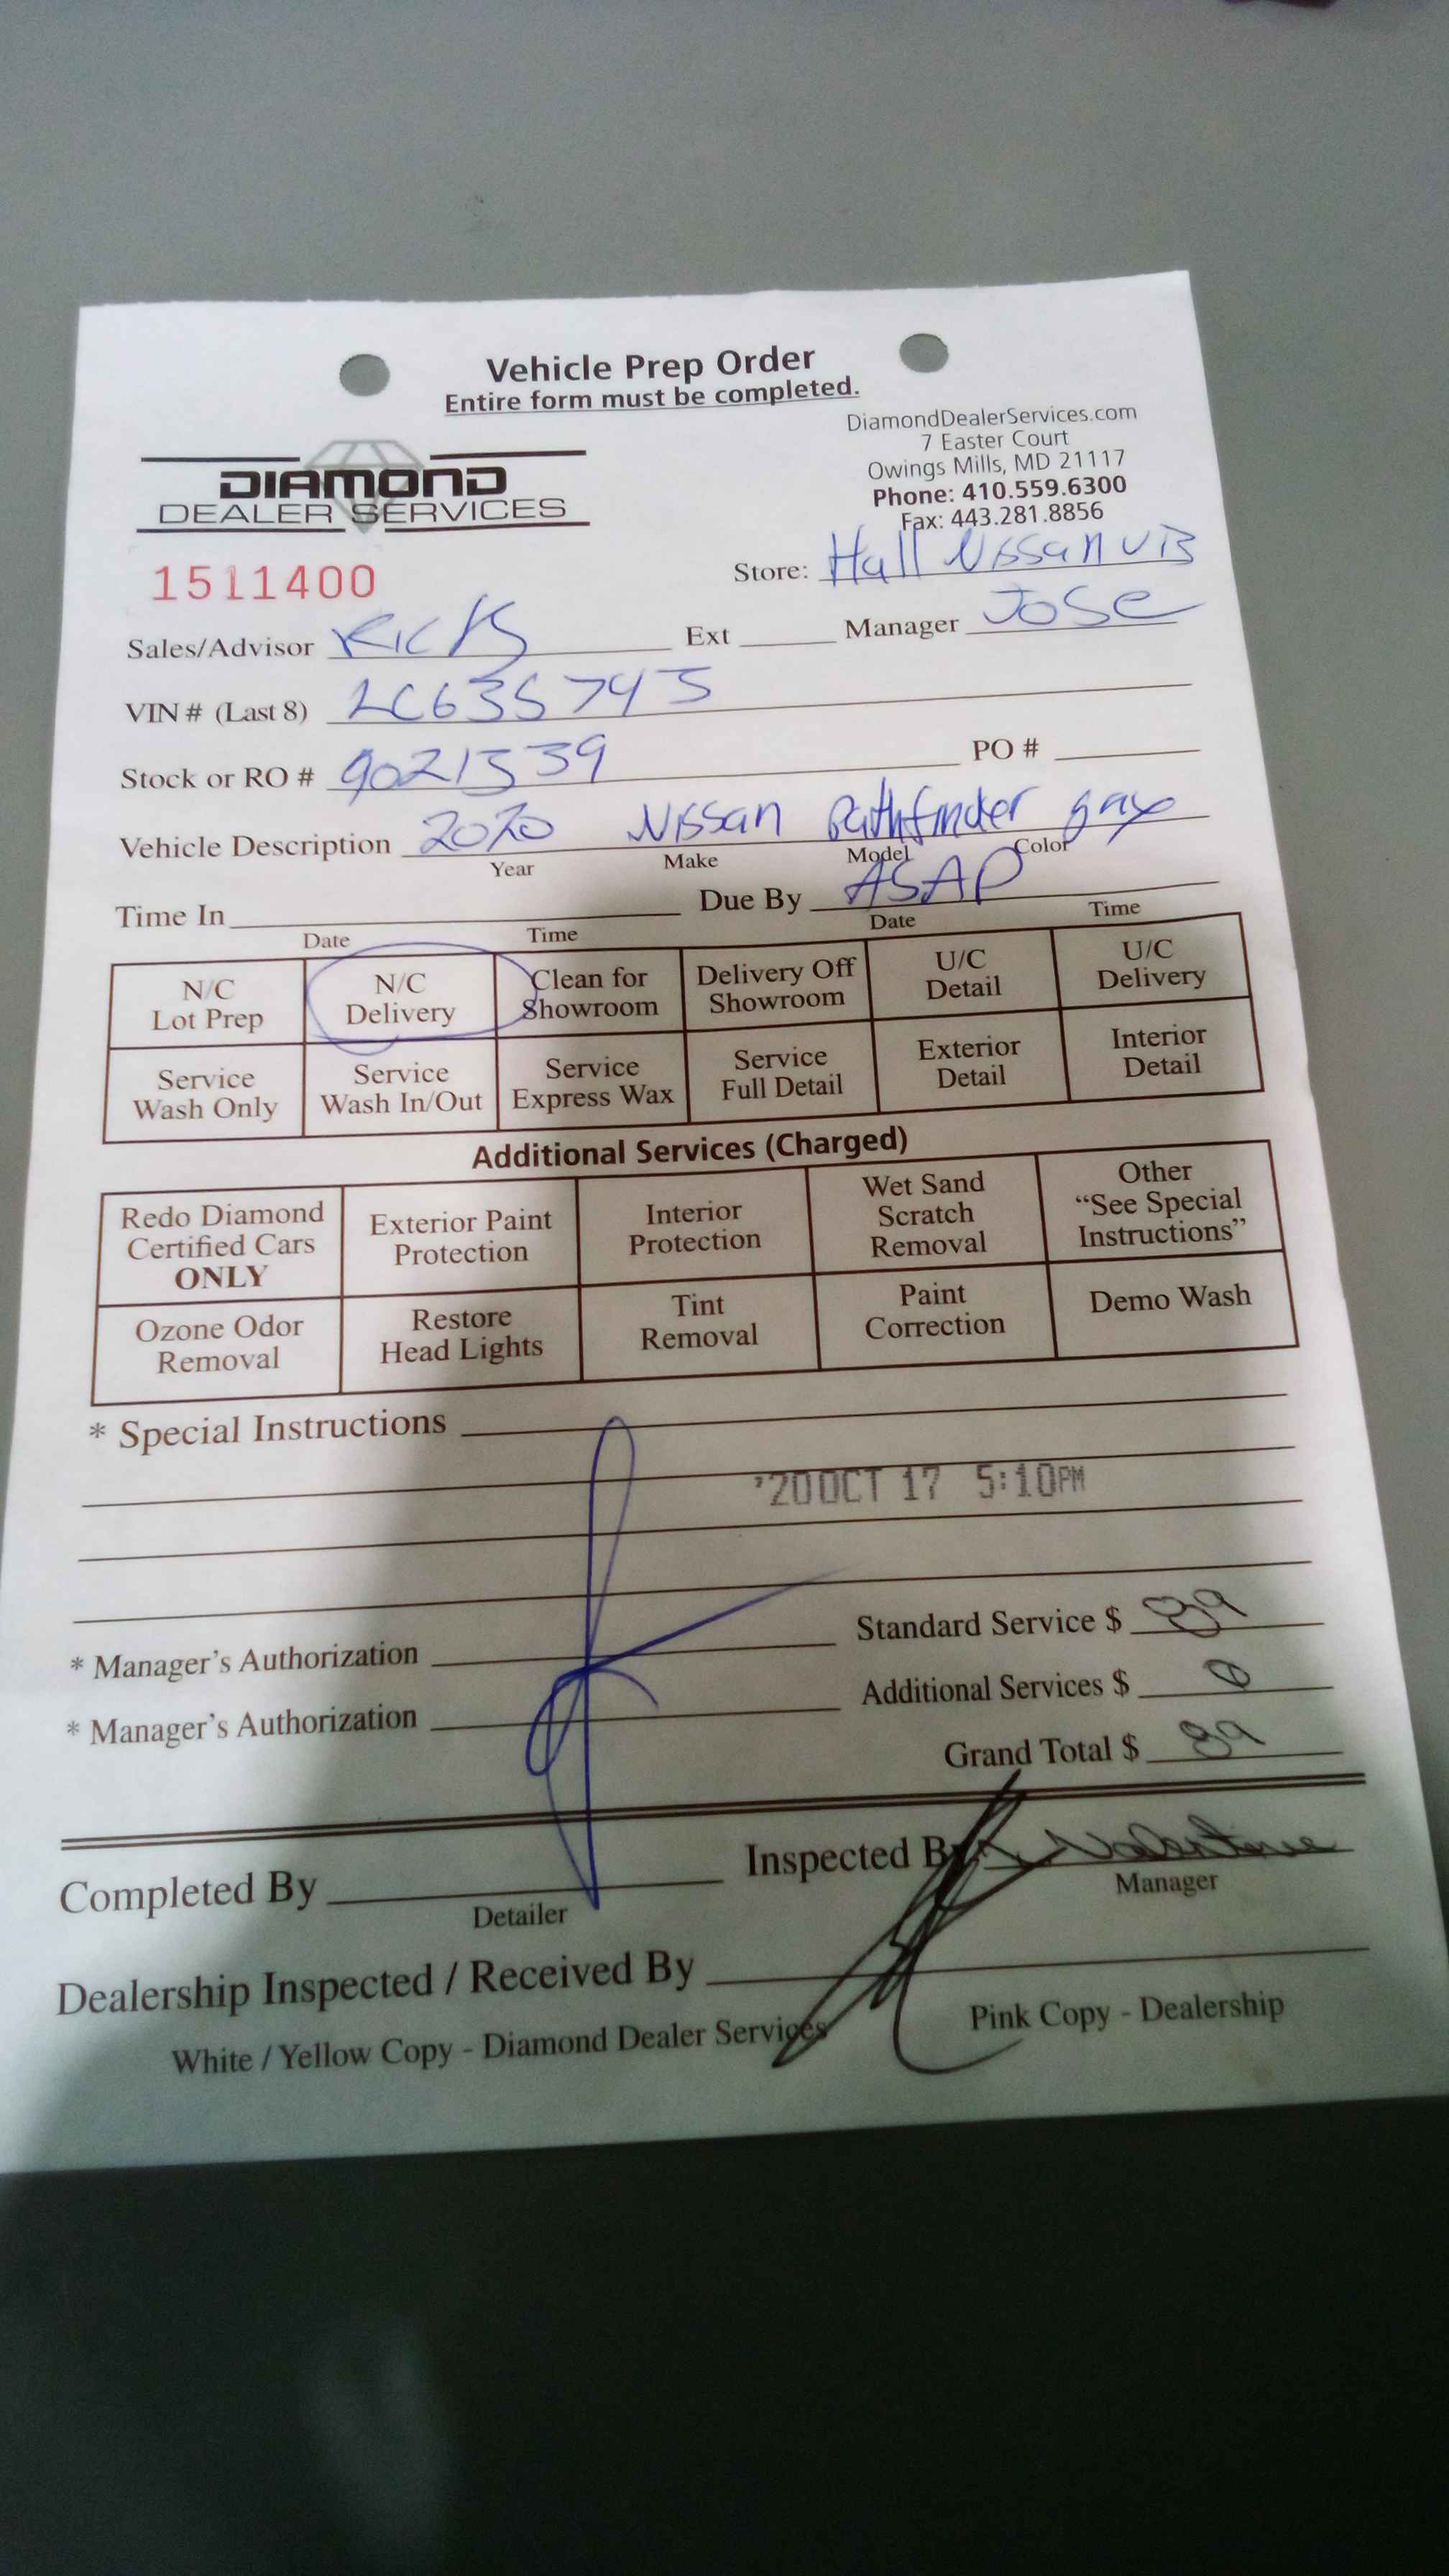 Vehicle Prep Order
Entire form must be completed.
DiamondDealerServices.com
7 Easter Court
Owings Mills, MD 21117
Phone: 410.559.6300
Fax: 443.281.8856
DIAMOND
DEALER SERVICES
1511400
Store: Hall Nissan VB
Sales/Advisor Rick Ext Manager Jose
VIN # (Last 8) LC635743
Stock or RO # 9021539 PO #
Vehicle Description 2020 Nissan Pathfinder gray
Year Make Model Color
Time In Due By ASAP
Date Time Date Time
N/C Lot Prep
N/C Delivery
Clean for Showroom
Delivery Off Showroom
U/C Detail
U/C Delivery
Service Wash Only
Service Wash In/Out
Service Express Wax
Service Full Detail
Exterior Detail
Interior Detail
Additional Services (Charged)
Redo Diamond Certified Cars ONLY
Exterior Paint Protection
Interior Protection
Wet Sand Scratch Removal
Other "See Special Instructions"
Ozone Odor Removal
Restore Head Lights
Tint Removal
Paint Correction
Demo Wash
* Special Instructions
'20 OCT 17 5:10PM
Standard Service $ 39
* Manager's Authorization
Additional Services $ 0
* Manager's Authorization
Grand Total $ 39
Completed By Inspected By
Detailer Manager
Dealership Inspected / Received By
White / Yellow Copy - Diamond Dealer Services Pink Copy - Dealership